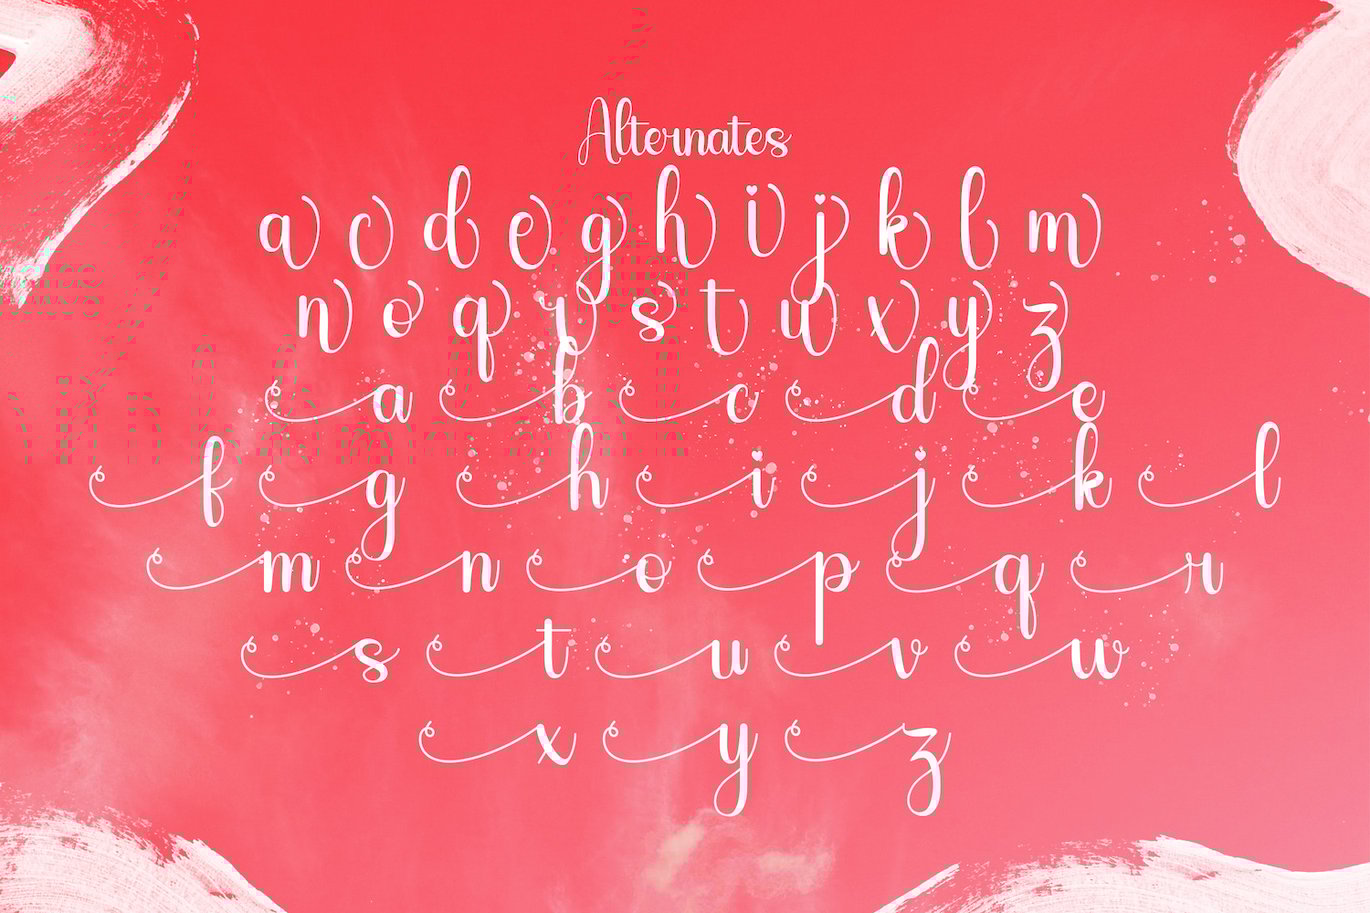 Alternates
a c d e g h i j k l m
n o q r s t u x y z
a b c d e
f g h i j k l
m n o p q r
s t u v w
x y z